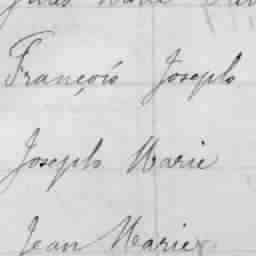 François Joseph
Joseph Marie
Jean Marie